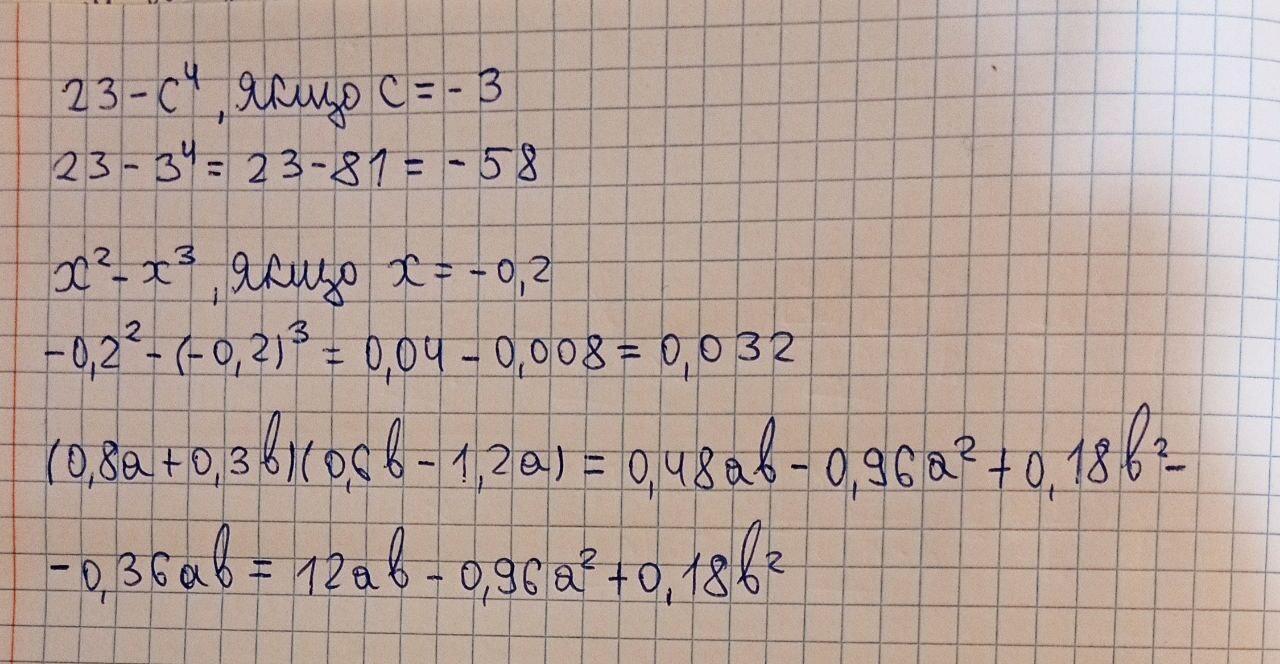 23-c⁴, якщо c=-3
23-3⁴=23-81=-58
x²-x³, якщо x=-0,2
-0,2²-(-0,2)³=0,04-0,008=0,032
(0,8a+0,3b)(0,6b-1,2a)=0,48ab-0,96a²+0,18b²-
-0,36ab=12ab-0,96a²+0,18b²